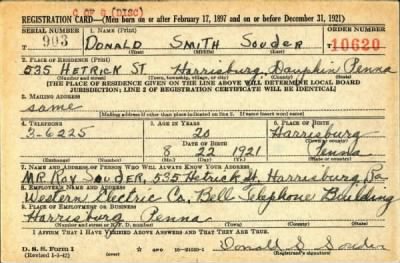 C of S (DISC)
REGISTRATION CARD—(Men born on or after February 17, 1897 and on or before December 31, 1921)
SERIAL NUMBER 1. NAME (Print) ORDER NUMBER
903 DONALD SMITH SOUDER 10620
(First) (Middle) (Last)
2. PLACE OF RESIDENCE (Print)
535 HETRICK ST Harrisburg, Dauphin Penna
(Number and street) (Town, township, village, or city) (County) (State)
[THE PLACE OF RESIDENCE GIVEN ON THE LINE ABOVE WILL DETERMINE LOCAL BOARD
JURISDICTION; LINE 2 OF REGISTRATION CERTIFICATE WILL BE IDENTICAL]
3. MAILING ADDRESS
same
[Mailing address if other than place indicated on line 2. If same insert word same]
4. TELEPHONE 5. AGE IN YEARS 6. PLACE OF BIRTH
3-6225 20 Harrisburg
DATE OF BIRTH (Town or county)
8 22 1921 Penna
(Exchange) (Number) (Mo.) (Day) (Yr.) (State or country)
7. NAME AND ADDRESS OF PERSON WHO WILL ALWAYS KNOW YOUR ADDRESS
MR. Roy SOUDER, 535 Hetrick St. Harrisburg, Pa
8. EMPLOYER'S NAME AND ADDRESS
Western Electric Co. Bell Telephone Building
9. PLACE OF EMPLOYMENT OR BUSINESS
Harrisburg Penna
(Number and street or R. F. D. number) (Town) (County) (State)
I AFFIRM THAT I HAVE VERIFIED ABOVE ANSWERS AND THAT THEY ARE TRUE.
D. S. S. Form 1
(Revised 1-1-42) GPO 16—21630-1 Donald S. Souder
(Registrant's signature)